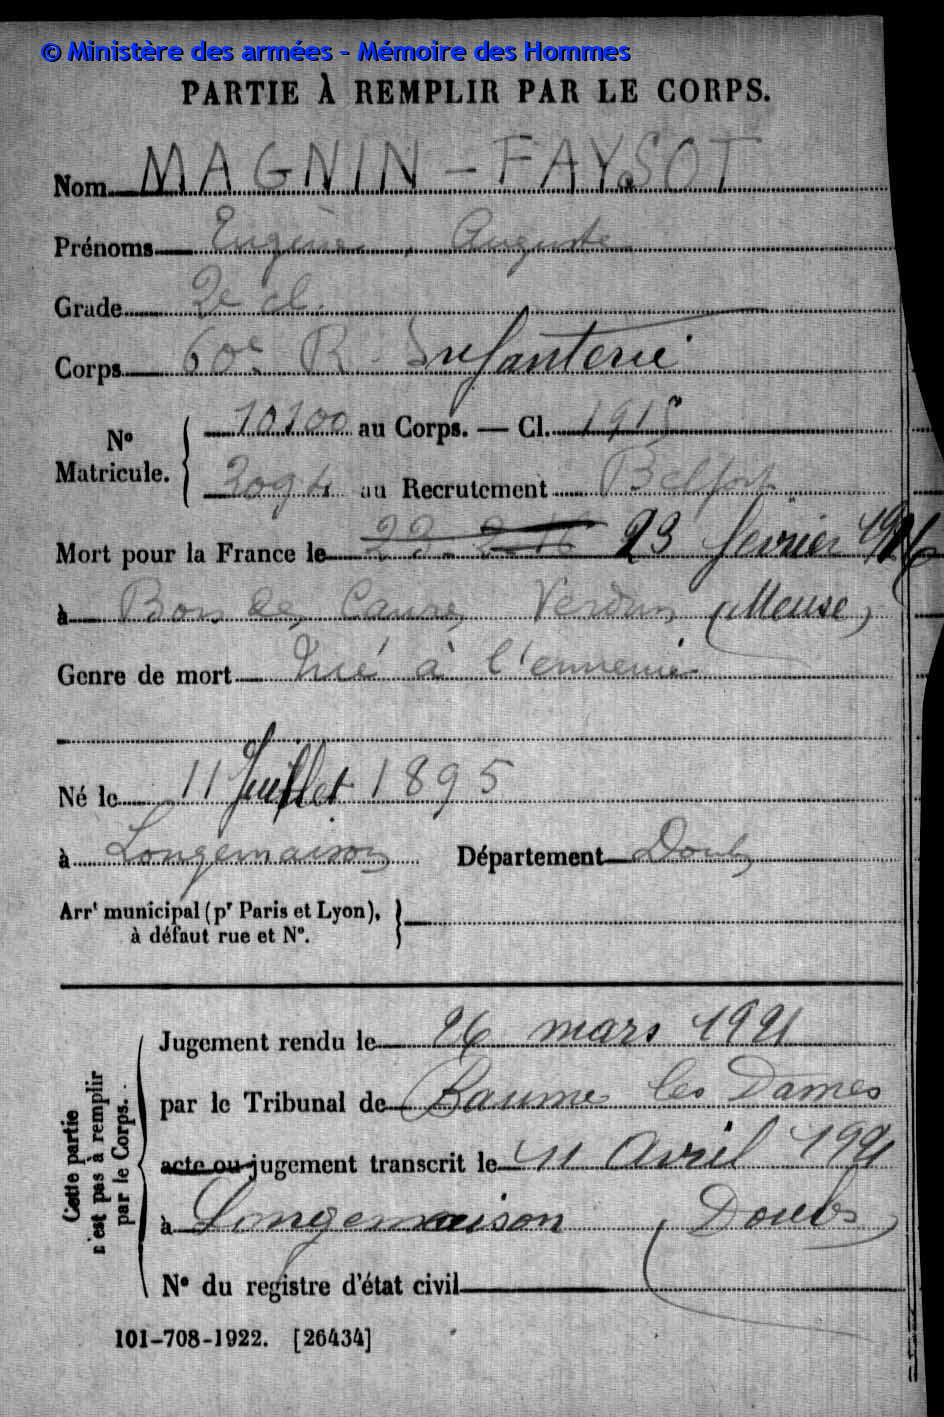 © Ministère des armées - Mémoire des Hommes
PARTIE À REMPLIR PAR LE CORPS.
Nom MAGNIN - FAYSOT
Prénoms Eugène, Auguste
Grade 2e cl.
Corps 60e R. Infanterie
N° Matricule. { 10100 au Corps. — Cl. 1915
3094 au Recrutement Belfort
Mort pour la France le 23. 2. 16 23 février 1916
à Bois des Caures Verdun (Meuse)
Genre de mort Tué à l'ennemi
Né le 11 Juillet 1895
à Longemaison Département Doubs
Arrt municipal (pr Paris et Lyon), }
à défaut rue et N°.
Cette partie n'est pas à remplir par le Corps.
Jugement rendu le 26 mars 1921
par le Tribunal de Baume les Dames
acte ou jugement transcrit le 11 avril 1921
à Longemaison (Doubs)
N° du registre d'état civil
101-708-1922. [26434]